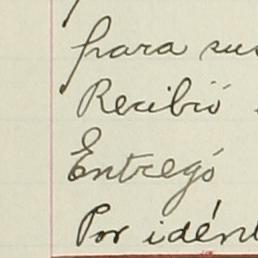 para sus
Recibió
Entregó
Por idént